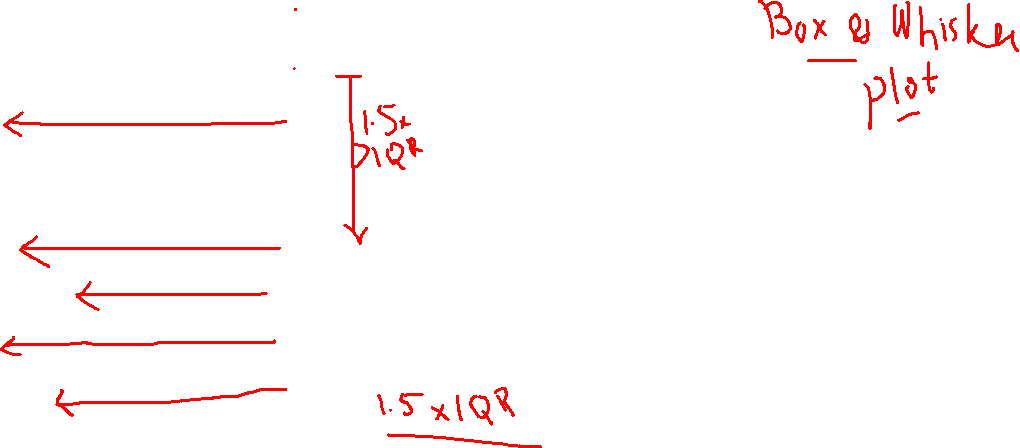 Box & Whisker
plot
1.5x
IQR
1.5 x IQR